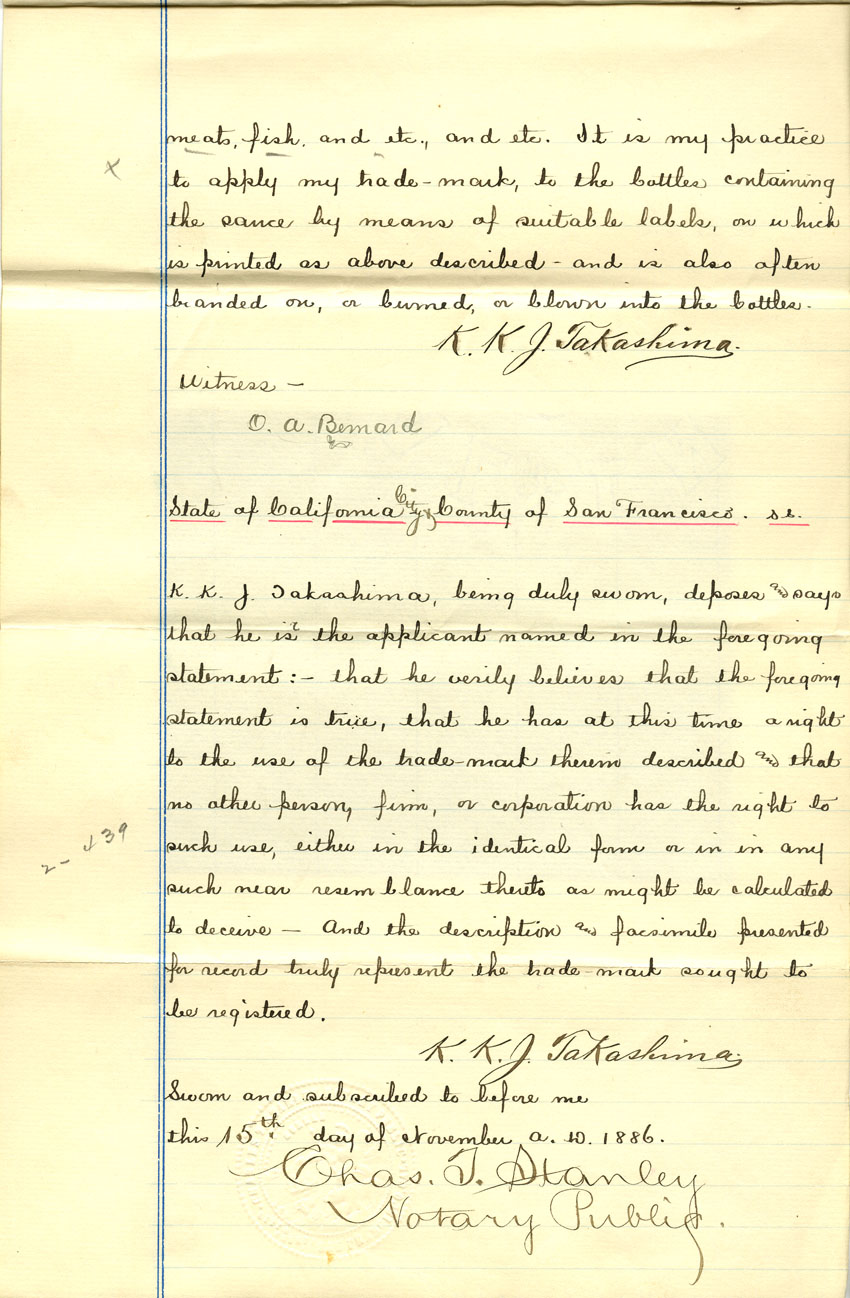 meats, fish, and etc., and etc. It is my practice
x
to apply my trade-mark, to the bottles containing
the sauce by means of suitable labels, on which
is printed as above described - and is also often
branded on, or burned, or blown into the bottles.
K. K. J. Takashima.
Witness -
O. A. Bernard
State of California City & County of San Francisco. ss.
K. K. J. Takashima, being duly sworn, deposes and says
that he is the applicant named in the foregoing
statement:- that he verily believes that the foregoing
statement is true, that he has at this time a right
to the use of the trade-mark therein described and that
no other person, firm, or corporation has the right to
2-
such use, either in the identical form or in in any
such near resemblance thereto as might be calculated
to deceive - And the description and facsimile presented
for record truly represent the trade-mark sought to
be registered.
K. K. J. Takashima,
Sworn and subscribed to before me
this 15th. day of November, A. D. 1886.
Chas. T. Stanley
Notary Public.